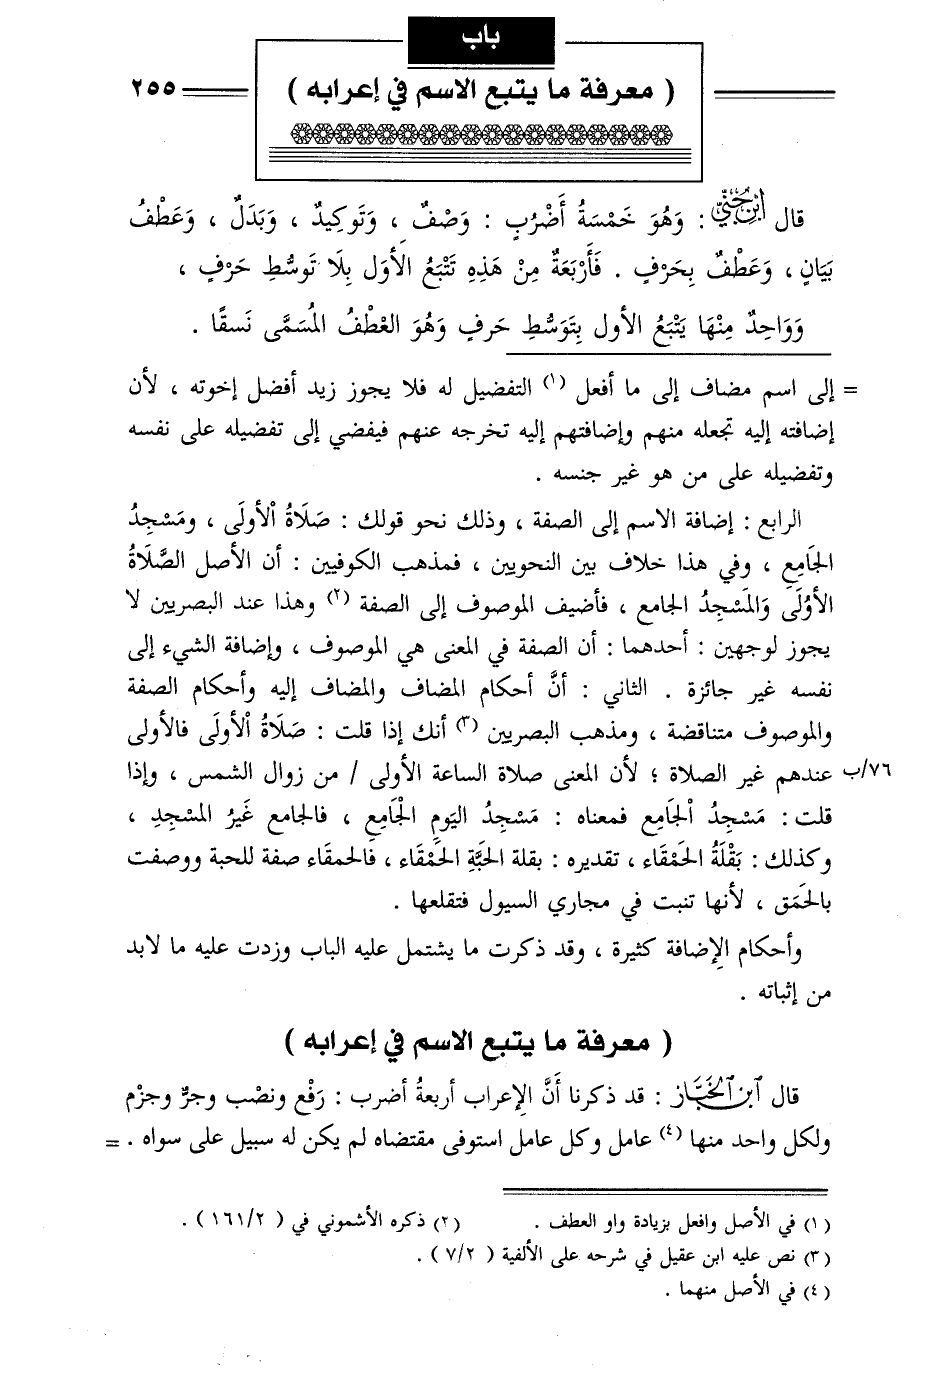 باب
( معرفة ما يتبع الاسم في إعرابه )
٢٥٥
قال ابن جني : وَهُوَ خَمْسَةُ أَضْرُبٍ : وَصْفٌ ، وَتَوكِيدٌ ، وَبَدَلٌ ، وَعَطْفُ
بَيَانٍ ، وَعَطْفٌ بِحَرْفٍ . فَأَرْبَعَةٌ مِنْ هَذِهِ تَتْبَعُ الأَوَل بِلَا تَوسُّطِ حَرْفٍ ،
وَوَاحِدٌ مِنْهَا يَتْبَعُ الأول بِتَوَسُّطِ حَرفٍ وَهُوَ العْطْفُ المُسَمَّى نَسقًا .
= إلى اسم مضاف إلى ما أفعل (١) التفضيل له فلا يجوز زيد أفضل إخوته ، لأن
إضافته إليه تجعله منهم وإضافتهم إليه تخرجه عنهم فيفضي إلى تفضيله على نفسه
وتفضيله على من هو غير جنسه .
الرابع : إضافة الاسم إلى الصفة ، وذلك نحو قولك : صَلَاةُ الْأولَى ، ومَسْجِدُ
الجَامِعِ ، وفي هذا خلاف بين النحويين ، فمذهب الكوفيين : أن الأصل الصَّلَاةُ
الأوُلَى وَالمَسْجِدُ الجامع ، فأضيف الموصوف إلى الصفة (٢) وهذا عند البصريين لا
يجوز لوجهين : أحدهما : أن الصفة في المعنى هي الموصوف ، وإضافة الشيء إلى
نفسه غير جائزة . الثاني : أنَّ أحكام المضاف والمضاف إليه وأحكام الصفة
والموصوف متناقضة ، ومذهب البصريين (٣) أنك إذا قلت : صَلَاةُ الْأولَى فالأولى
٧٦/ب عندهم غير الصلاة ؛ لأن المعنى صلاة الساعة الأولى / من زوال الشمس ، وإذا
قلت : مَسْجِدُ الْجَامِعِ فمعناه : مَسْجِدُ اليَومِ الْجَامِعِ ، فالجامع غَيرُ المسْجِدِ ،
وكذلك : بَقْلَةُ الحَمْقَاء ، تقديره : بقلة الحَبَّةِ الحَمْقَاء ، فالحمقَاء صفة للحبة ووصفت
بالحَمَق ، لأنها تنبت في مجاري السيول فتقلعها .
وأحكام الإضافة كثيرة ، وقد ذكرت ما يشتمل عليه الباب وزدت عليه ما لابد
من إثباته .
( معرفة ما يتبع الاسم في إعرابه )
قال ابن الخباز : قد ذكرنا أَنَّ الإعراب أربعةُ أضرب : رَفْع ونصْب وجرٌّ وجزْم
ولكل واحد منها (٤) عامل وكل عامل استوفى مقتضاه لم يكن له سبيل على سواه . =
(١) في الأصل وافعل بزيادة واو العطف . (٢) ذكره الأشموني في ( ١٦١/٢ ) .
(٣) نص عليه ابن عقيل في شرحه على الألفية ( ٧/٢ ) .
(٤) في الأصل منهما .